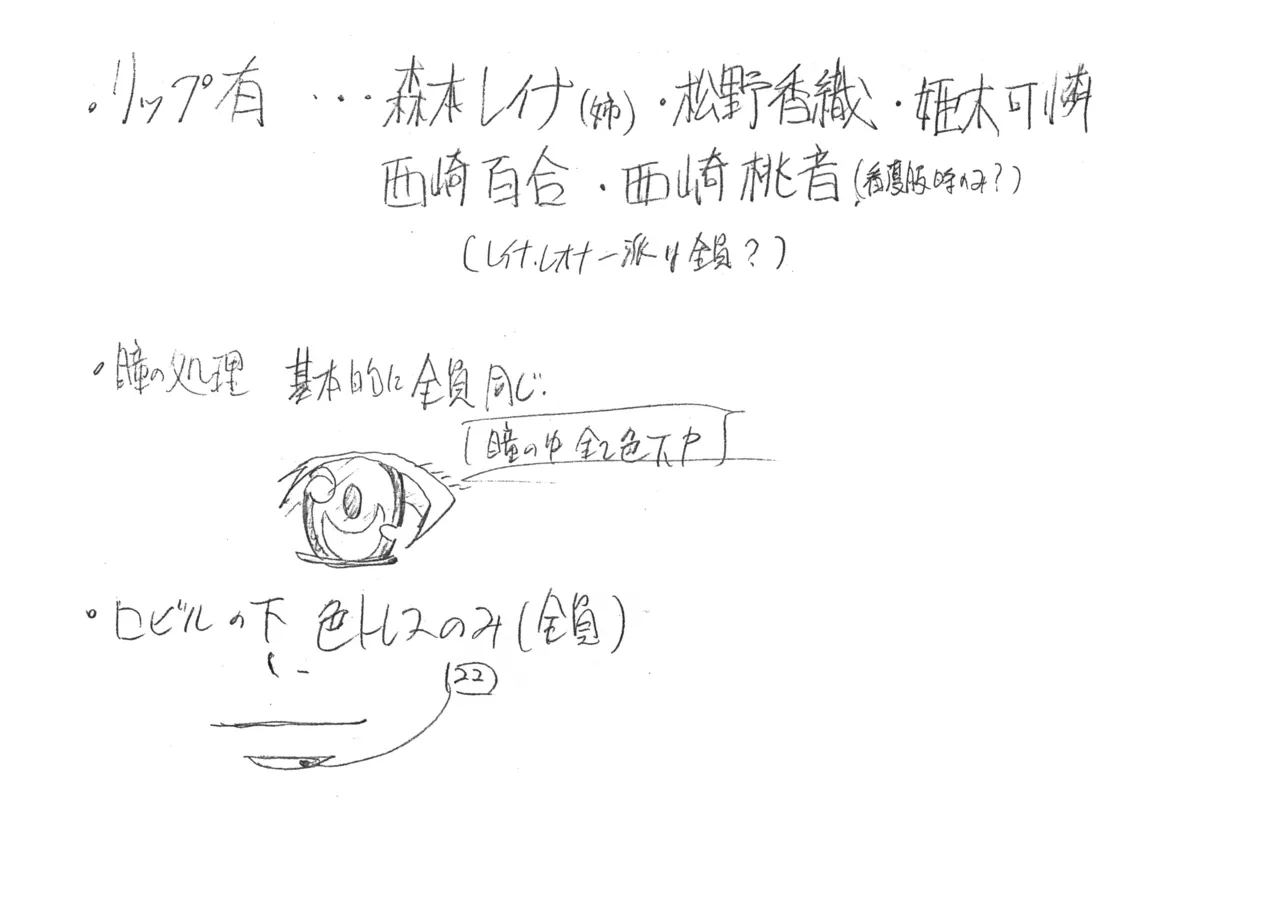 ・リップ有 ・・・森本レイナ(姉)・松野香織・姫木可憐
西崎百合・西崎桃音(看護服時のみ?)
(レイナ.レオナ一派は全員?)
・瞳の処理 基本的に全員同じ.
瞳の中 全て色下中
・口ビルの下 色トレスのみ(全員)
22